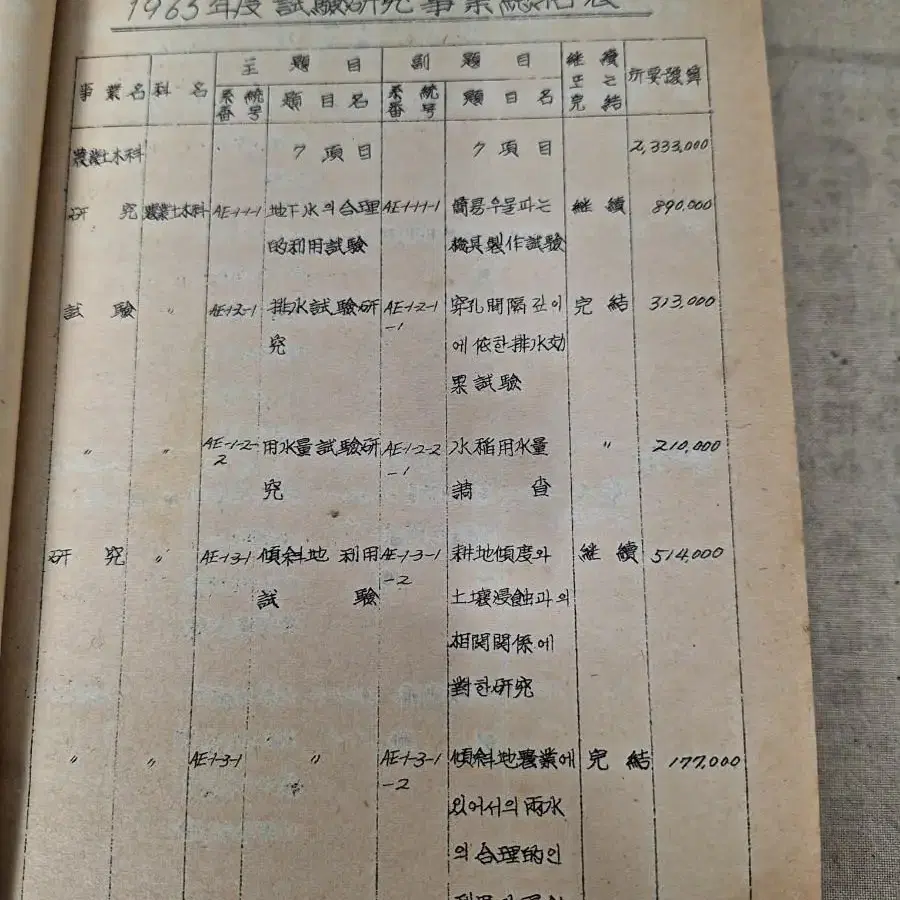 1965年度 試驗研究事業總括表
主題目 副題目 継續
事業名 科名 또는 所要豫算
系統 題目名 系統 題目名 完結
番号 番号
農業土木科 7項目 7項目 2,333,000
研究 農業土木科 AE-1-1-1 地下水의合理 AE-1-1-1-1 簡易우물파는 継續 890,000
的利用試驗 機具製作試驗
試驗 〃 AE-1-2-1 排水試驗研 AE-1-2-1 穿孔間隔깊이 完結 313,000
-1
究 에依한排水効
果試驗
〃 〃 AE-1-2- 用水量試驗研 AE-1-2-2 水稲用水量 〃 210,000
2 -1
究 調査
研究 〃 AE-1-3-1 傾斜地利用 AE-1-3-1 耕地傾度와 継續 514,000
-2
試驗 土壤浸蝕과의
相関関係에
對한研究
〃 〃 AE-1-3-1 〃 AE-1-3-1 傾斜地農業에 完結 177,000
-2
있어서의雨水
의合理的인